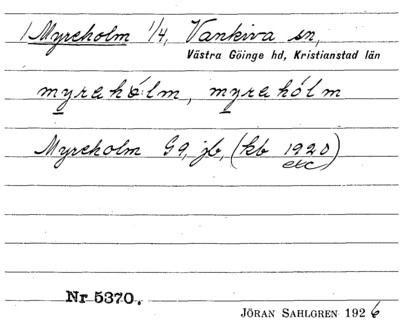 1 Myreholm 1/4, Vankiva sn,
Västra Göinge hd, Kristianstad län
myrehólm, myrahólm
Myreholm G9, jb, (kb 1920)
etc
Nr 5370.
JÖRAN SAHLGREN 1926